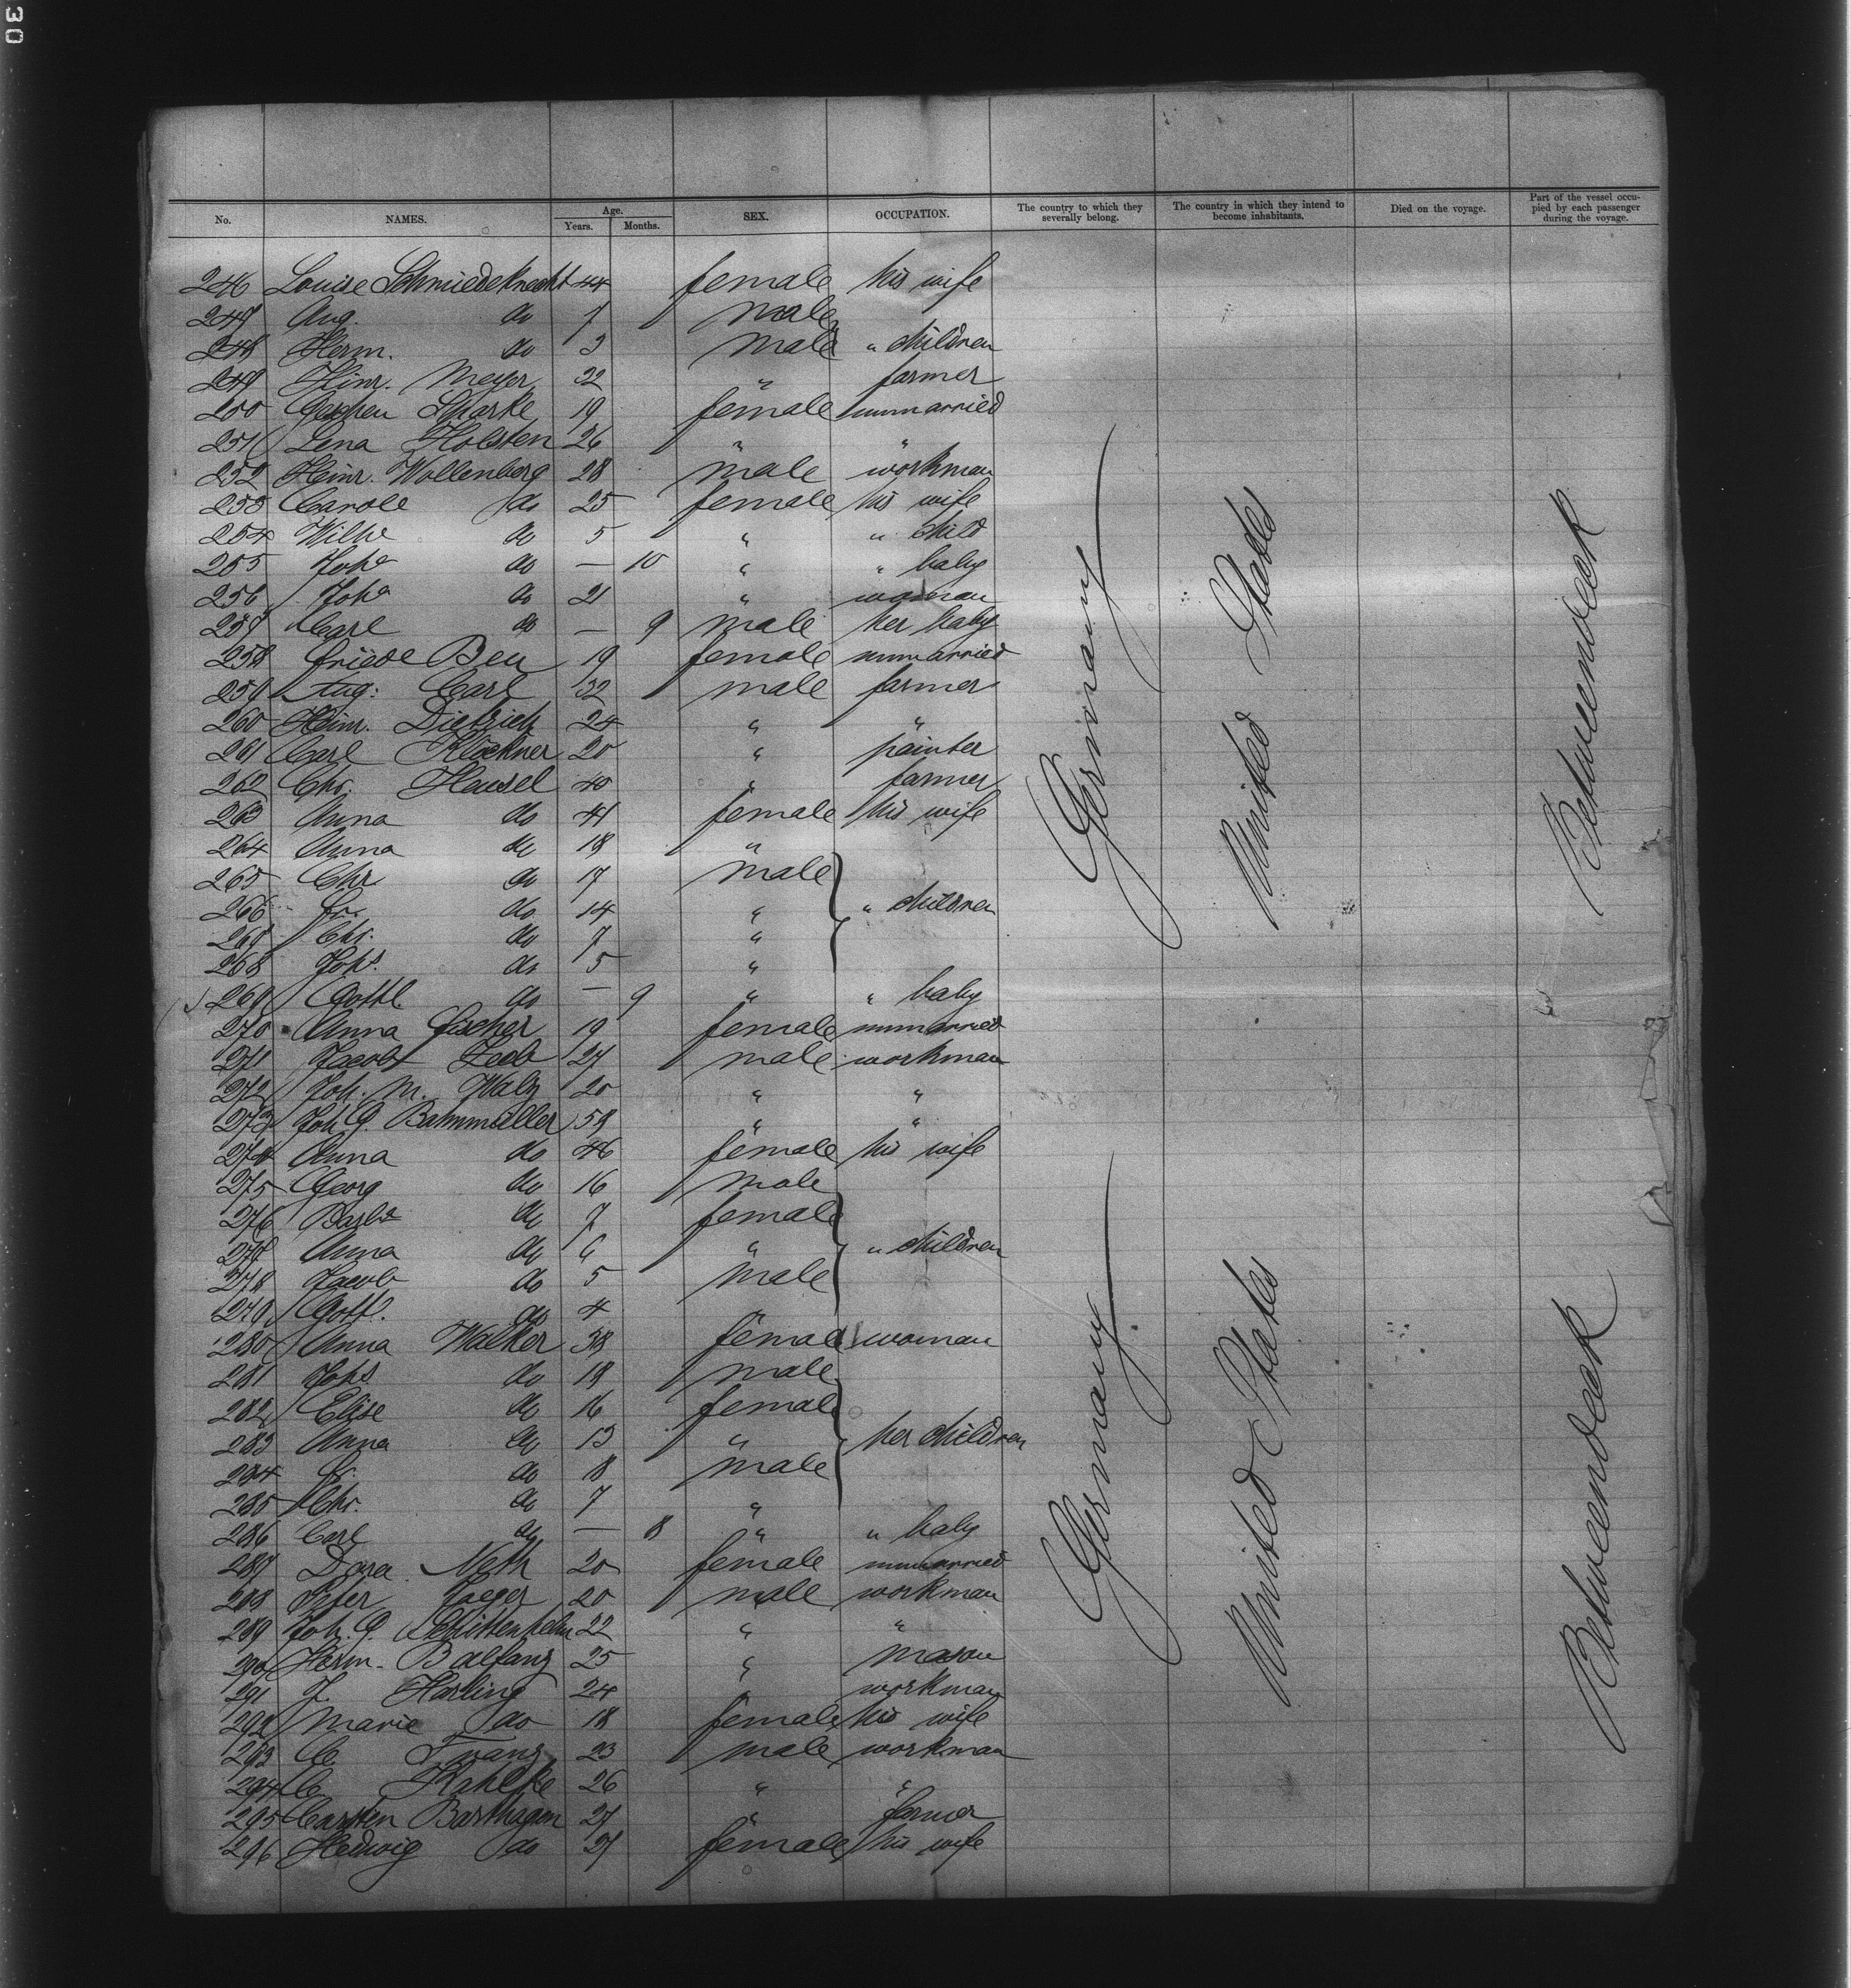 30
No. NAMES. Age. Years. Months. SEX. OCCUPATION. The country to which they severally belong. The country in which they intend to become inhabitants. Died on the voyage. Part of the vessel occupied by each passenger during the voyage.
246 Louise Schmiedeknecht 44 female his wife
247 Aug. do 7 male
248 Herm. do 3 male " children
249 Hinr. Meyer 22 " farmer
250 Geschen Starke 19 female unmarried
251 Lena Holsten 26 " "
252 Heinr. Wollenberg 28 male workman
253 Carole do 25 female his wife
254 Wilhe do 5 " " child
255 Joha do — 10 " " baby
256 Joha do 21 " woman
257 Carl do — 9 male her baby
258 Friede Beu 19 female unmarried
259 Aug: Carl 32 male farmer
260 Heinr. Dietrich 24 " "
261 Carl Klöckner 20 " painter
262 Chr. Hensel 40 " farmer
263 Anna do 41 female his wife
264 Anna do 18 "
265 Chr do 17 male
266 Fr. do 14 " " children
267 Chr. do 7 "
268 Johs. do 5 "
269 Gottl do — 9 " " baby
270 Anna Fischer 19 female unmarried
271 Jacob Zeeb 27 male workman
272 Joh. M. Walz 20 " "
273 Joh G. Bahnmüller 58 " "
274 Anna do 46 female his wife
275 Georg do 16 male
276 Barba do 7 female
277 Anna do 6 " " children
278 Jacob do 5 male
279 Gottl. do 4 "
280 Anna Walker 38 female woman
281 Johs do 18 male
282 Elise do 16 female
283 Anna do 13 " her children
284 Fr. do 18 male
285 Chr. do 7 "
286 Carl do — 8 " " baby
287 Dora Neth 20 female unmarried
288 Peter Jaeger 20 male workman
289 Joh. G. Schittenhelm 22 " "
290 Herm. Balfanz 25 " mason
291 J. Harling 24 " workman
292 Marie do 18 female his wife
293 C Twang 23 male workman
294 C Kahlke 26 " "
295 Carsten Barthagen 27 " farmer
296 Hedwig do 21 female his wife
Germany United States Betweendeck
Germany United States Betweendeck